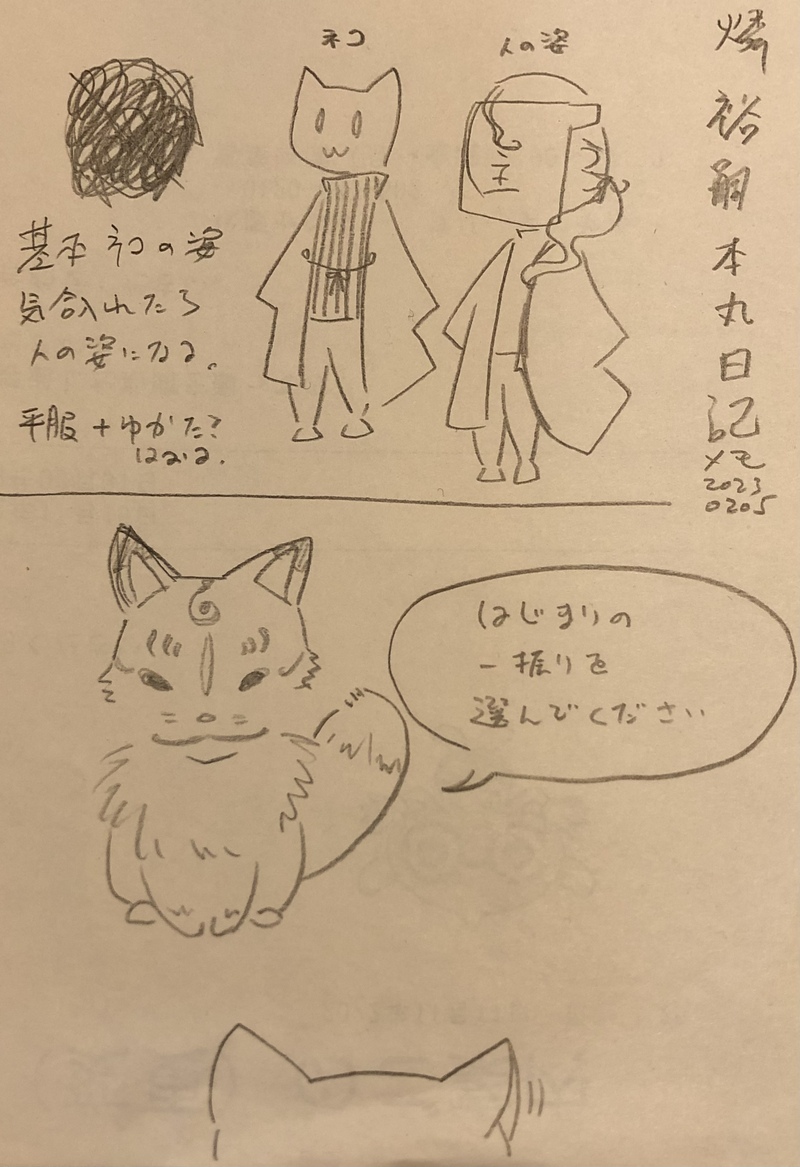 燐裕嗣本丸日記
メモ
2023
0205
ネコ
人の姿
主
基本ネコの姿
気合入れたら
人の姿になる。
平服+ゆかた?
はおる.
はじまりの
一振りを
選んでください